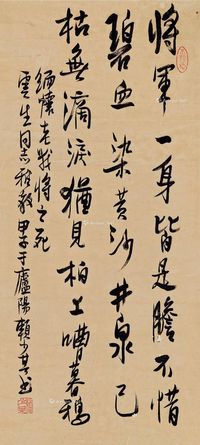 將軍一身皆是膽不惜
碧血染黃沙井泉已
枯無滴淚猶見柏上噪暮鴉
緬懷老戰將之死
雲生同志指教甲子于廬陽賴少其書